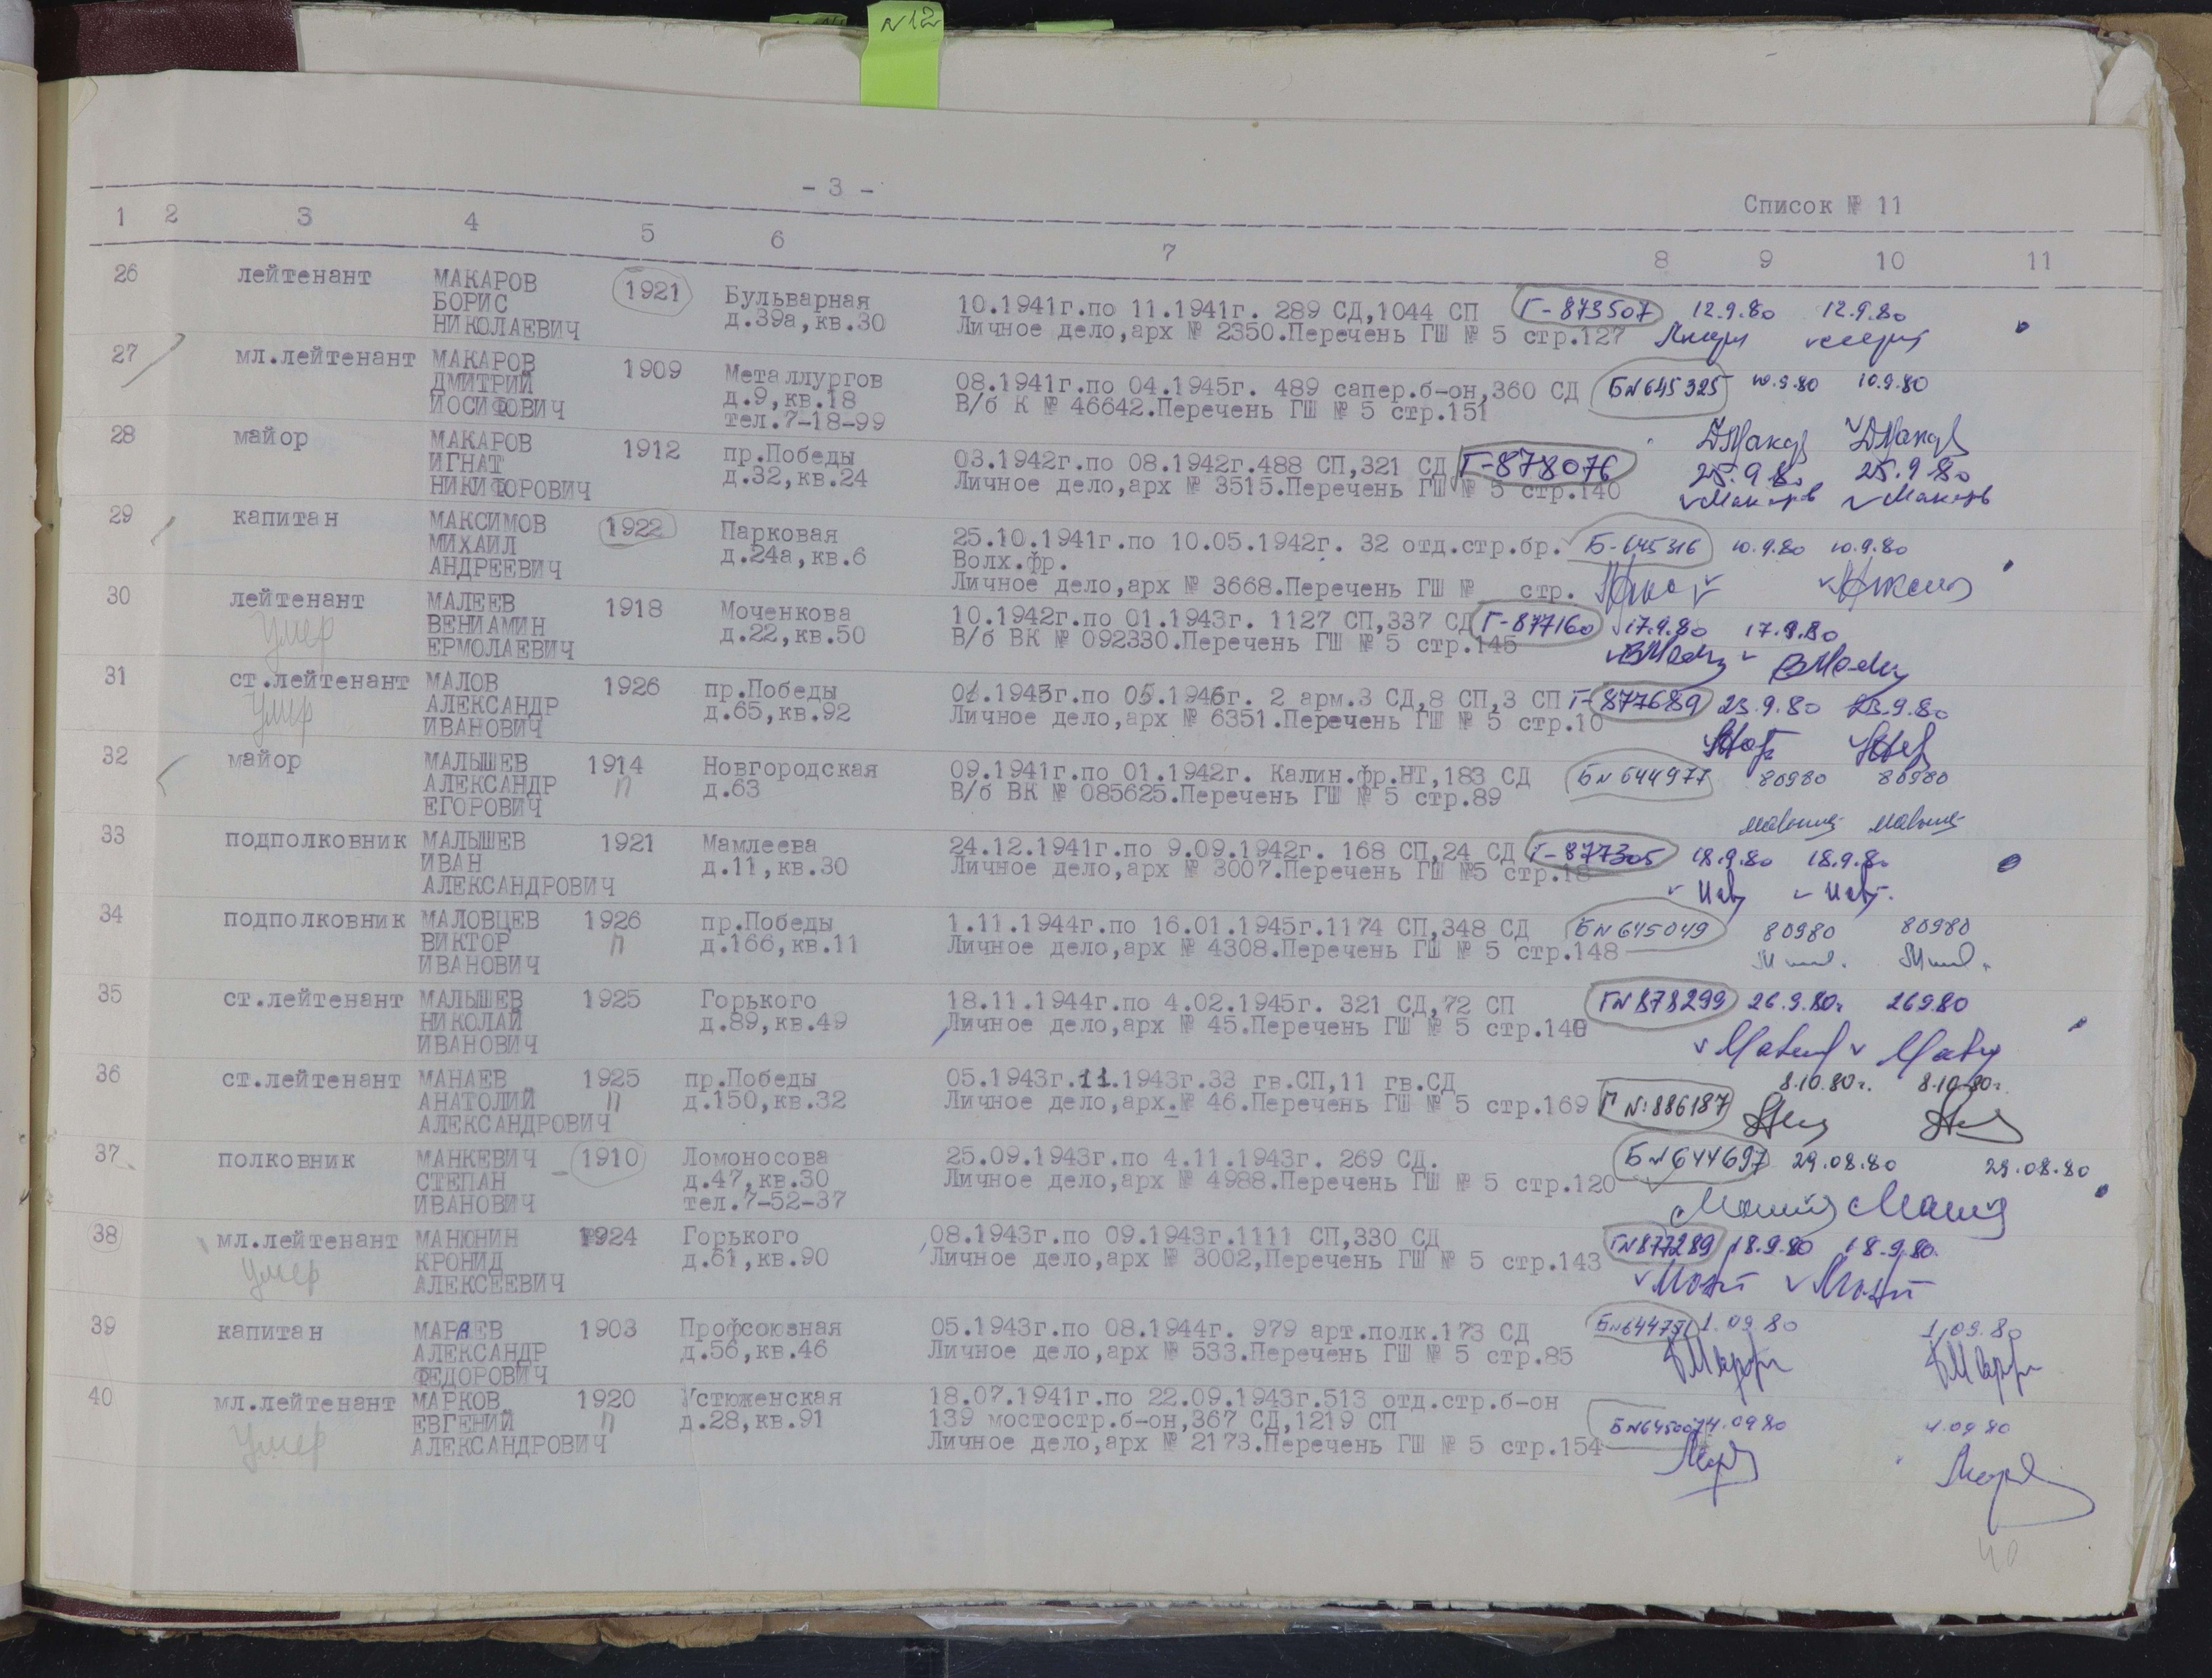 N12
- 3 -
Список № 11
1 2 3 4 5 6 7 8 9 10 11
26 лейтенант МАКАРОВ 1921 Бульварная 10.1941г.по 11.1941г. 289 СД,1044 СП Г-873507 12.9.80 12.9.80
БОРИС д.39а,кв.30 Личное дело,арх № 2350.Перечень ГШ № 5 стр.127
НИКОЛАЕВИЧ
27 мл.лейтенант МАКАРОВ 1909 Металлургов 08.1941г.по 04.1945г. 489 сапер.б-он,360 СД Б№645325 10.9.80 10.9.80
ДМИТРИЙ д.9,кв.18 В/б К № 46642.Перечень ГШ № 5 стр.151
ИОСИФОВИЧ тел.7-18-99
28 майор МАКАРОВ 1912 пр.Победы 03.1942г.по 08.1942г.488 СП,321 СД Г-878076 25.9.80 25.9.80
ИГНАТ д.32,кв.24 Личное дело,арх № 3515.Перечень ГШ № 5 стр.140 Макаров Макаров
НИКИФОРОВИЧ
29 капитан МАКСИМОВ 1922 Парковая 25.10.1941г.по 10.05.1942г. 32 отд.стр.бр. Б-645316 10.9.80 10.9.80
МИХАИЛ д.24а,кв.6 Волх.фр.
АНДРЕЕВИЧ Личное дело,арх № 3668.Перечень ГШ № стр.
30 лейтенант МАЛЕЕВ 1918 Моченкова 10.1942г.по 01.1943г. 1127 СП,337 СД Г-877160 17.9.80 17.9.80
умер ВЕНИАМИН д.22,кв.50 В/б ВК № 092330.Перечень ГШ № 5 стр.145
ЕРМОЛАЕВИЧ
31 ст.лейтенант МАЛОВ 1926 пр.Победы 1945г.по 05.1946г. 2 арм.3 СД,8 СП,3 СП Г-877689 23.9.80 23.9.80
умер АЛЕКСАНДР д.65,кв.92 Личное дело,арх № 6351.Перечень ГШ № 5 стр.10
ИВАНОВИЧ
32 майор МАЛЫШЕВ 1914 Новгородская 09.1941г.по 01.1942г. Калин.фр.НТ,183 СД Б№644977 80980 80980
АЛЕКСАНДР п д.63 В/б ВК № 085625.Перечень ГШ № 5 стр.89
ЕГОРОВИЧ
33 подполковник МАЛЫШЕВ 1921 Мамлеева 24.12.1941г.по 9.09.1942г. 168 СП,24 СД Г-877305 18.9.80 18.9.80
ИВАН д.11,кв.30 Личное дело,арх № 3007.Перечень ГШ №5 стр.18
АЛЕКСАНДРОВИЧ
34 подполковник МАЛОВЦЕВ 1926 пр.Победы 1.11.1944г.по 16.01.1945г.1174 СП,348 СД Б№645049 80980 80980
ВИКТОР п д.166,кв.11 Личное дело,арх № 4308.Перечень ГШ № 5 стр.148
ИВАНОВИЧ
35 ст.лейтенант МАЛЫШЕВ 1925 Горького 18.11.1944г.по 4.02.1945г. 321 СД,72 СП Г№878299 26.9.80г 26980
НИКОЛАЙ д.89,кв.49 Личное дело,арх № 45.Перечень ГШ № 5 стр.140
ИВАНОВИЧ
36 ст.лейтенант МАНАЕВ 1925 пр.Победы 05.1943г.11.1943г.33 гв.СП,11 гв.СД 8.10.80г. 8.10.80г.
АНАТОЛИЙ п д.150,кв.32 Личное дело,арх.№ 46.Перечень ГШ № 5 стр.169 Г №886187
АЛЕКСАНДРОВИЧ
37 полковник МАНКЕВИЧ 1910 Ломоносова 25.09.1943г.по 4.11.1943г. 269 СД. Б№644697 29.08.80 29.08.80
СТЕПАН д.47,кв.30 Личное дело,арх № 4988.Перечень ГШ № 5 стр.120
ИВАНОВИЧ тел.7-52-37
38 мл.лейтенант МАНЮНИН 1924 Горького 08.1943г.по 09.1943г.1111 СП,330 СД Г№877289 18.9.80 18.9.80.
умер КРОНИД д.61,кв.90 Личное дело,арх № 3002,Перечень ГШ № 5 стр.143
АЛЕКСЕЕВИЧ
39 капитан МАРАЕВ 1903 Профсоюзная 05.1943г.по 08.1944г. 979 арт.полк.173 СД 1.09.80 1.09.80
АЛЕКСАНДР д.56,кв.46 Личное дело,арх № 533.Перечень ГШ № 5 стр.85
ФЕДОРОВИЧ
40 мл.лейтенант МАРКОВ 1920 Устюженская 18.07.1941г.по 22.09.1943г.513 отд.стр.б-он
умер ЕВГЕНИЙ п д.28,кв.91 139 мостостр.б-он,367 СД,1219 СП 4.0980 4.0980
АЛЕКСАНДРОВИЧ Личное дело,арх № 2173.Перечень ГШ № 5 стр.154
40